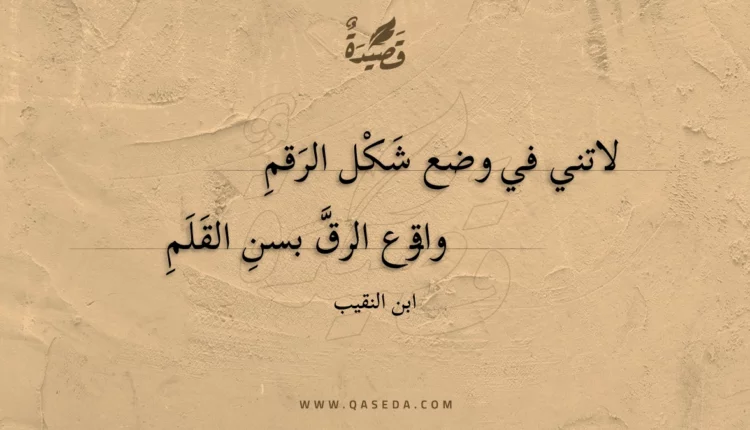 قَصِيْدَةٌ
لاتني في وضع شَكْل الرَقمِ
واقرع الرقَّ بسنِ القَلَمِ
ابن النقيب
WWW.QASEDA.COM